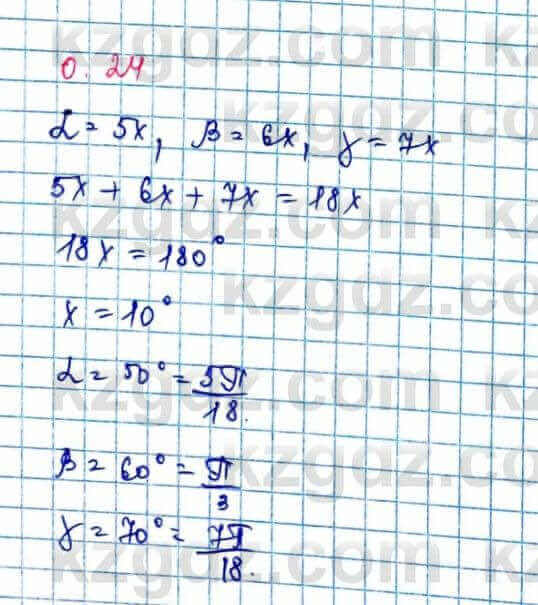 0.24
α = 5x, β = 6x, γ = 7x
5x + 6x + 7x = 18x
18x = 180°
x = 10°
α = 50° = 5π/18.
β = 60° = π/3
γ = 70° = 7π/18.
kzgdz.com